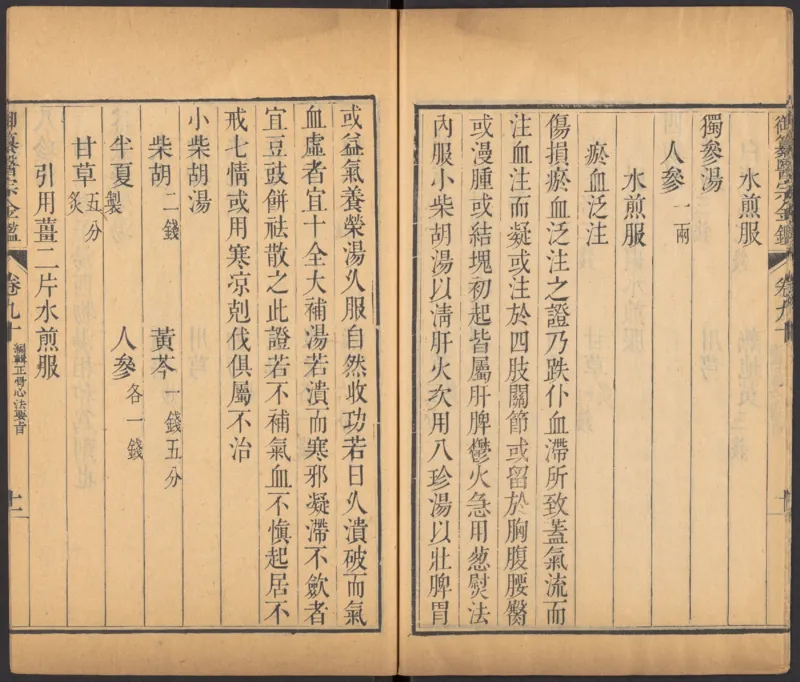 御纂醫宗金鑑 卷九十
水煎服
獨參湯
人參一兩
水煎服
瘀血泛注
傷損瘀血泛注之證乃跌仆血滯所致蓋氣流而
注血注而凝或注於四肢關節或留於胸腹腰臀
或漫腫或結塊初起皆屬肝脾鬱火急用葱熨法
內服小柴胡湯以淸肝火次用八珍湯以壯脾胃
或益氣養榮湯久服自然收功若日久潰破而氣
血虛者宜十全大補湯若潰而寒邪凝滯不斂者
宜豆豉餅祛散之此證若不補氣血不愼起居不
戒七情或用寒凉剋伐俱屬不治
小柴胡湯
柴胡二錢 黃芩一錢五分
半夏製 人參各一錢
甘草五分炙
引用薑二片水煎服
御纂醫宗金鑑 卷九十 編輯正骨心法要旨 十一